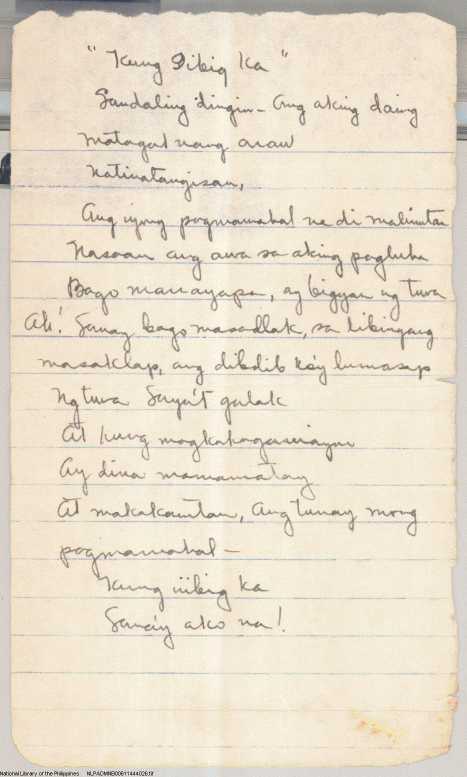 "Kung Iibig Ka"
Sandaling dingin - Ang aking daing
Matagal nang araw
Natinatangisan,
Ang iyong pagmamahal na di malimutan
Nasaan ang awa sa aking pagluha
Bago manaw, ay bigyan ng tuwa
Ah! Sanay bago masadlak, sa libingang
masaklap, ang dibdib ko'y lumasap
Ng tuwa Saya't galak
At kung magkakagawi
Ay dina mamamatay
At makakamtan, Ang tunay mong
pagmamahal -
Kung iibig ka
Sana'y ako na!
National Library of the Philippines NLPADMNB00611444026.tif